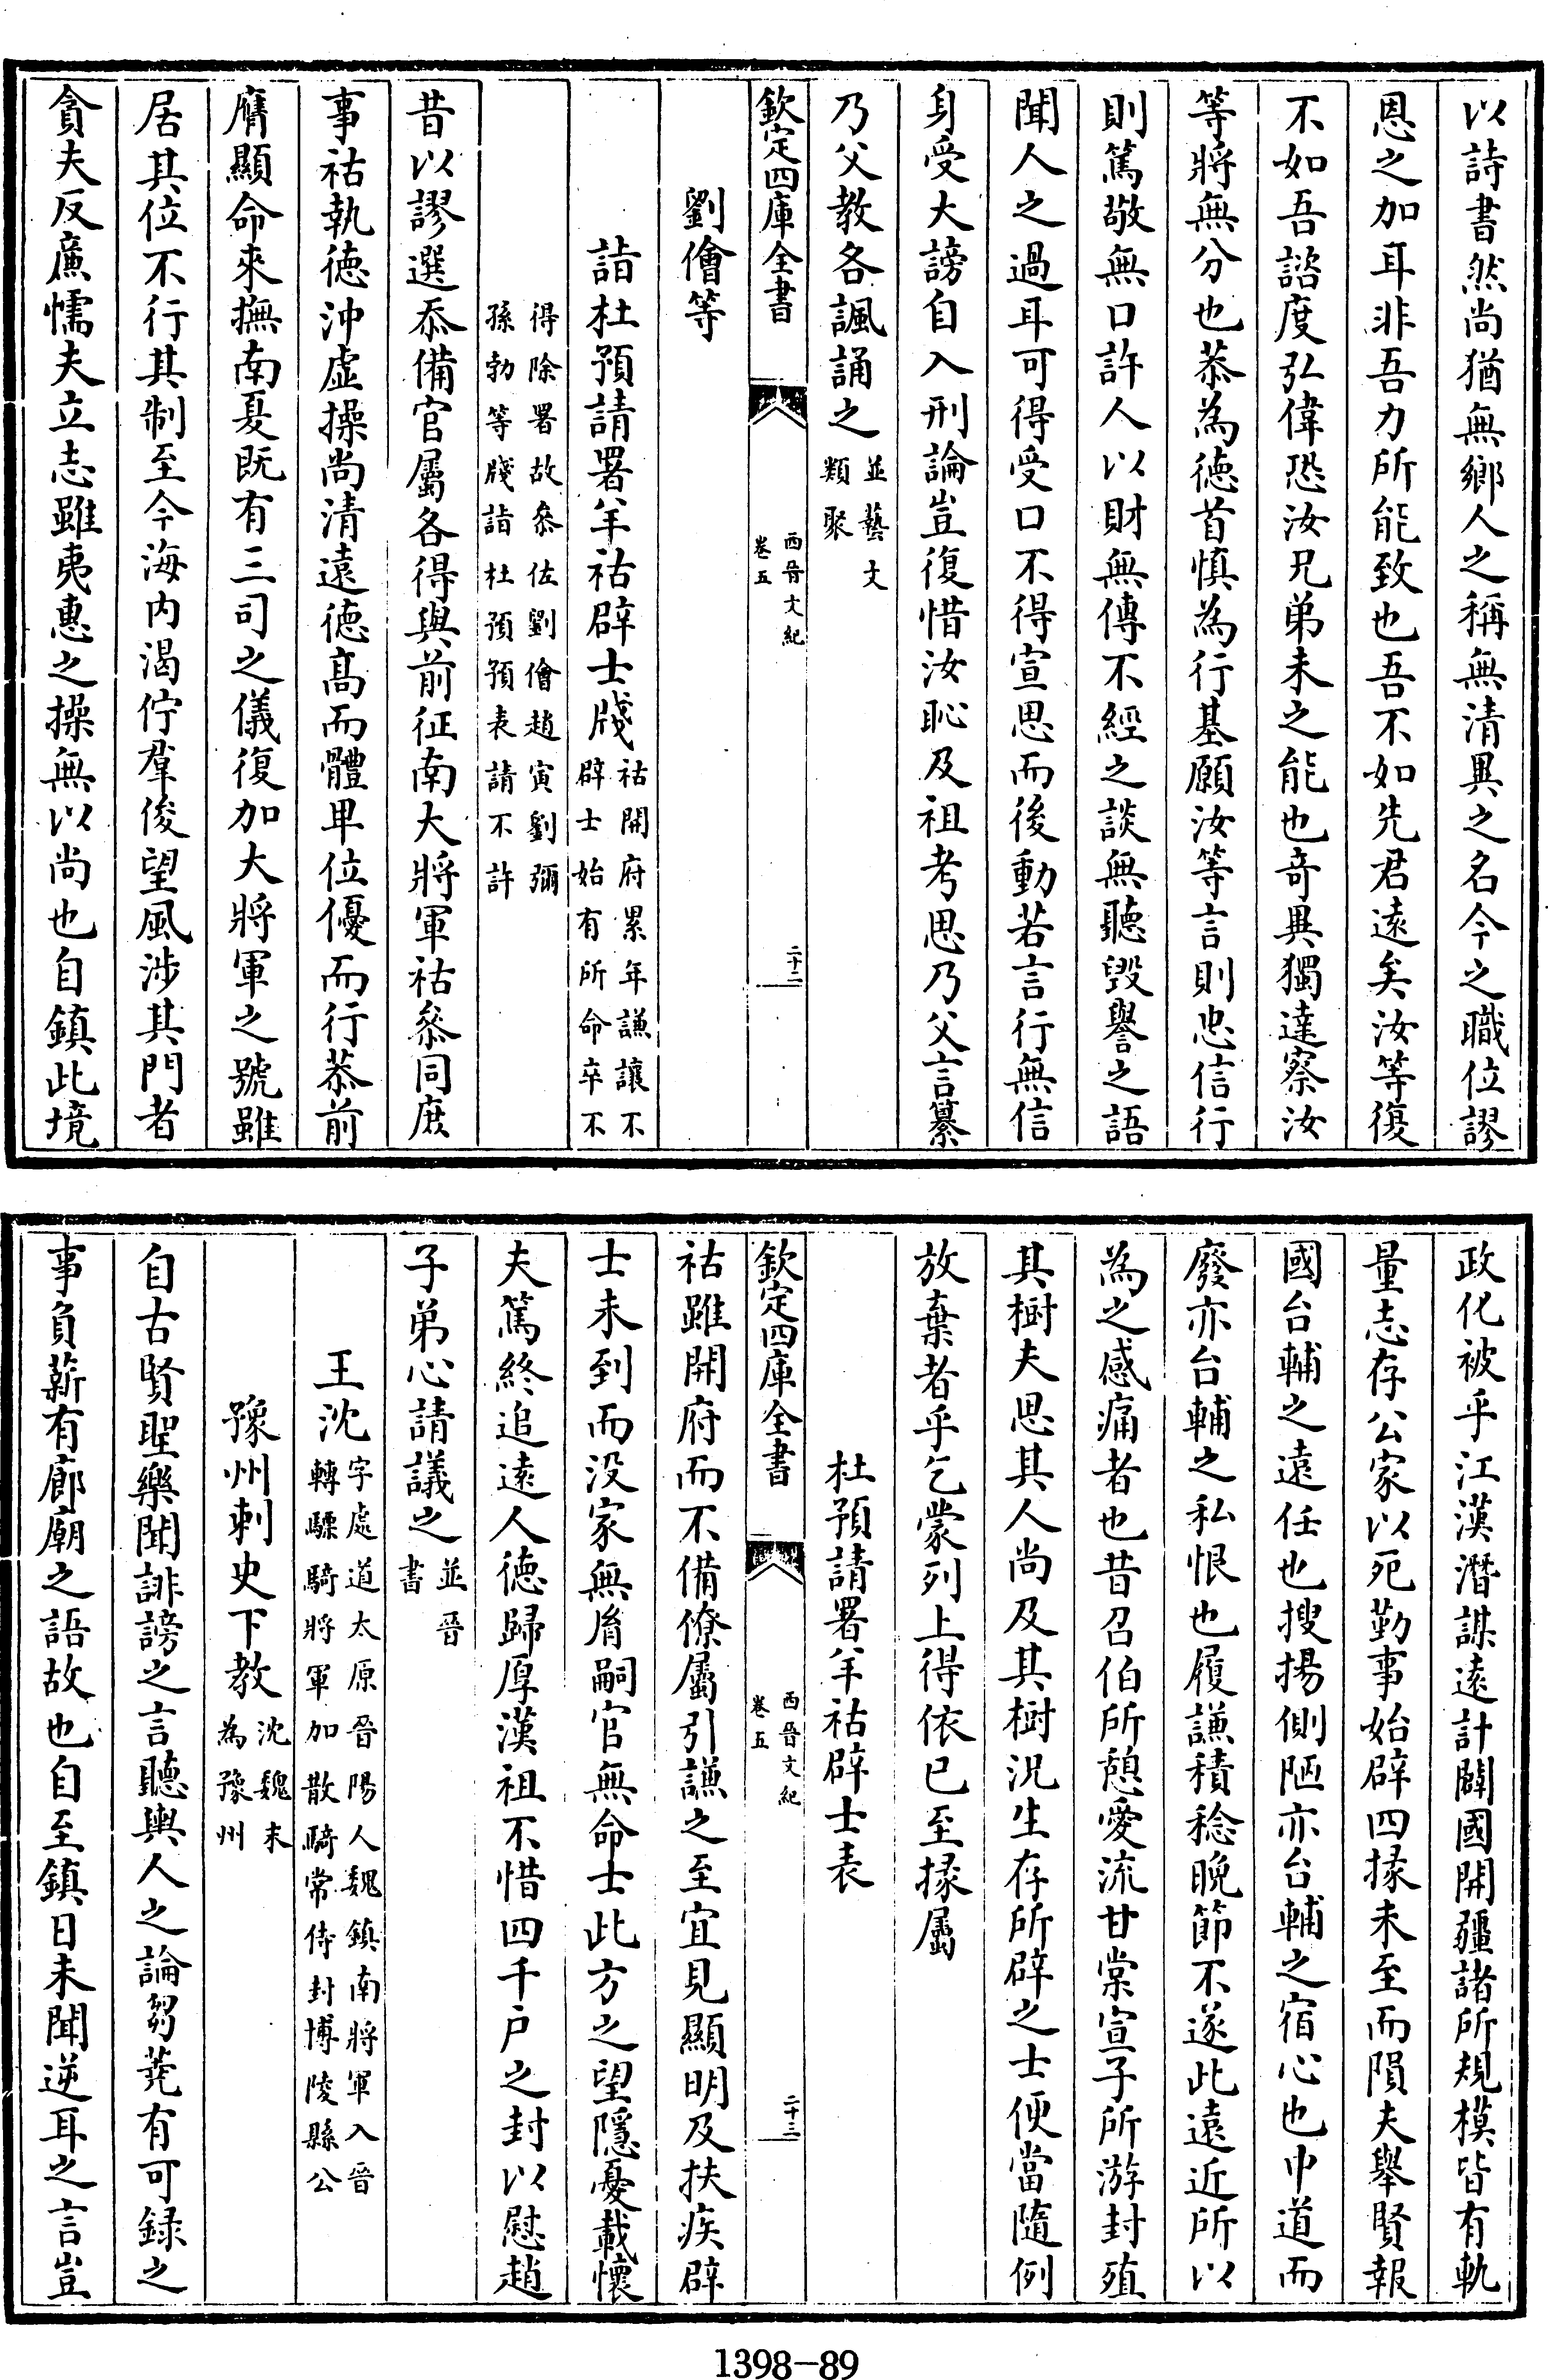 以詩書然尚猶無鄉人之稱無清異之名今之職位謬
恩之加耳非吾力所能致也吾不如先君遠矣汝等復
不如吾諮度弘偉恐汝兄弟未之能也竒異獨達察汝
等將無分也恭為徳首慎為行基願汝等言則忠信行
則篤敬無口許人以財無傳不經之談無聽毀譽之語
聞人之過耳可得受口不得宣思而後動若言行無信
身受大謗自入刑論豈復惜汝恥及祖考思乃父言纂
乃父教各諷誦之並藝文類聚
欽定四庫全書
西晉文紀
卷五
二十二
劉儈等
詣杜預請署羊祜辟士牋祜開府累年謙讓不辟士始有所命卒不
得除署故叅佐劉儈趙寅劉彌孫勃等牋詣杜預預表請不許
昔以謬選忝備官屬各得與前征南大將軍祜叅同庶
事祜執徳沖虛操尚清逺徳髙而體卑位優而行恭前
膺顯命來撫南夏既有三司之儀復加大將軍之號雖
居其位不行其制至今海内渴佇羣俊望風涉其門者
貪夫反廉懦夫立志雖夷惠之操無以尚也自鎮此境
政化被乎江漢潛謀遠計闢國開疆諸所規模皆有軌
量志存公家以死勤事始辟四掾未至而隕夫舉賢報
國台輔之遠任也搜揚側陋亦台輔之宿心也中道而
廢亦台輔之私恨也履謙積稔晚節不遂此遠近所以
為之感痛者也昔召伯所憩愛流甘棠宣子所游封殖
其樹夫思其人尚及其樹況生存所辟之士便當隨例
放棄者乎乞蒙列上得依已至掾屬
杜預請署羊祜辟士表
欽定四庫全書
西晉文紀
卷五
二十三
祜雖開府而不備僚屬引謙之至宜見顯明及扶疾辟
士未到而没家無胤嗣官無命士此方之望隱憂載懷
夫篤終追遠人徳歸厚漢祖不惜四千户之封以慰趙
子弟心請議之並晉書
王沈字處道太原晉陽人魏鎮南將軍入晉轉驃騎將軍加散騎常侍封博陵縣公
豫州刺史下教沈魏末為豫州
自古賢聖樂聞誹謗之言聽輿人之論芻蕘有可録之
事負薪有廊廟之語故也自至鎮日未聞逆耳之言豈
1398-89